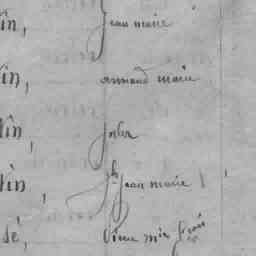 in, jean marie
in, armand marie
lin, jules
tin, jh jean marie
sé,